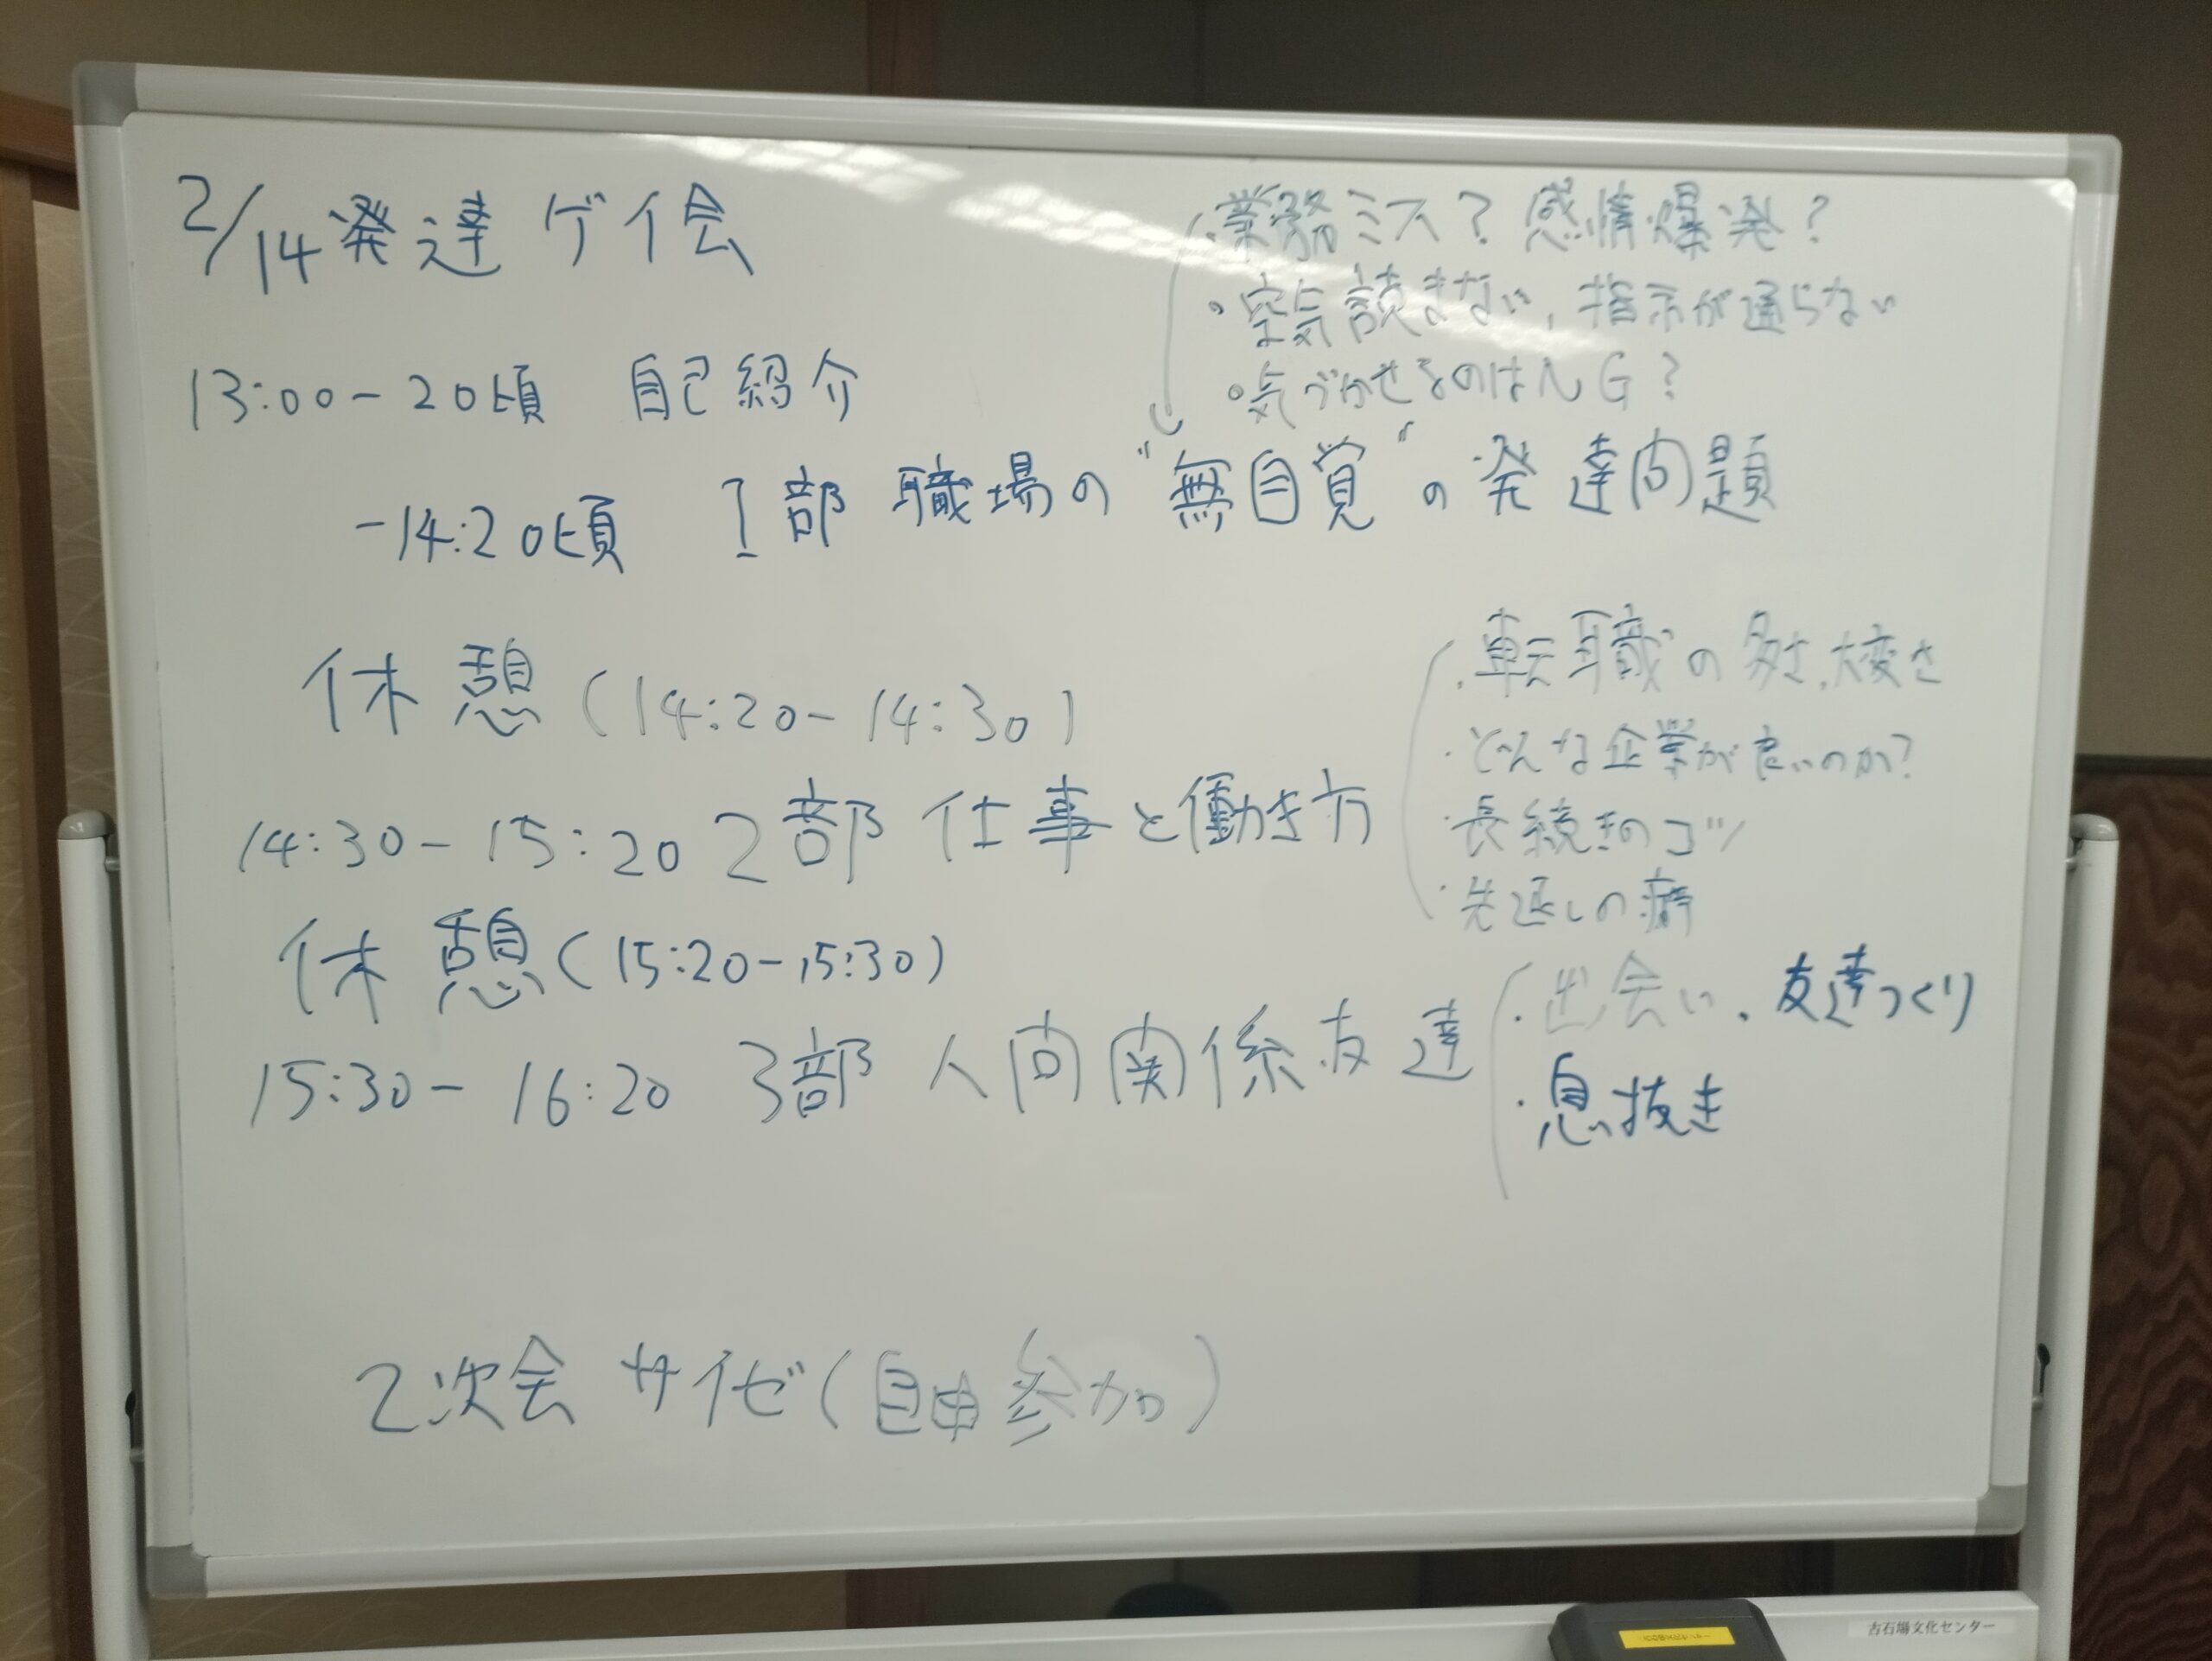 2/14 発達ゲイ会
・業務ミス？感情爆発？
・空気読まない、指示が通らない
・気づかせるのはNG？
13:00-20頃 自己紹介
-14:20頃 1部 職場の"無自覚"の発達問題
休憩(14:20-14:30)
・転職の多さ、大変さ
・どんな企業が良いのか？
・長続きのコツ
・先延しの癖
14:30-15:20 2部 仕事と働き方
休憩(15:20-15:30)
15:30-16:20 3部 人間関係友達
・出会い、友達つくり
・息抜き
2次会 サイゼ(自由参加)
古石場文化センター